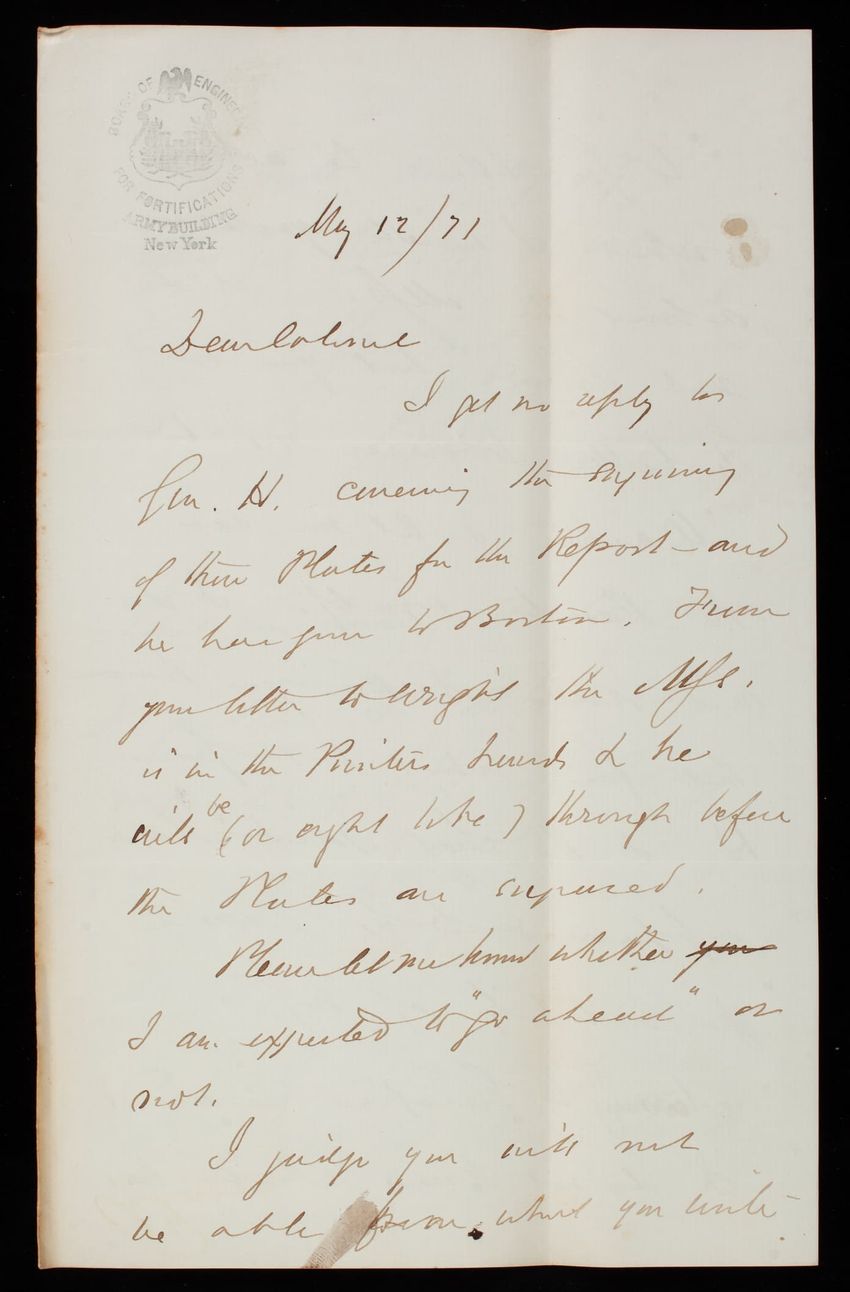 BOARD OF ENGINEERS
FOR FORTIFICATIONS
ARMY BUILDING
New York
May 12/71
Dear Colonel
I get no reply to
Gen. H. concerning the engraving
of these Plates for the Report – and
he has gone to Boston. From
your letter to Wright the MSS.
is in the Printers hands & he
will be (or ought to be) through before
the Plates are engraved.
Please let me know whether you
I am expected to "go ahead" or
not.
I judge you will not
be able from what you write